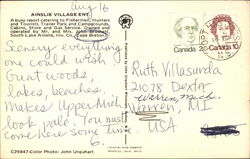 Aug 16
AINSLIE VILLAGE ENT
A busy resort catering to Fishermen, Hunters
and Tourists. Trailer Park and Campgrounds,
Cabins, Store and Gas Service. Owned and
operated by Mr. and Mrs. John
South Lake Ainslie, Inv. Co., Cape Breton
Scenery everything
one could wish
Great woods,
lakes, beaches.
Makes Upper Mich
look pale. You must
come here some time
6.
C29847-Color Photo: John Urquhart
Canada
Canada 10
Ruth Villasurda
21078 Dexter
Warren, Mich.
Warren, MI
USA